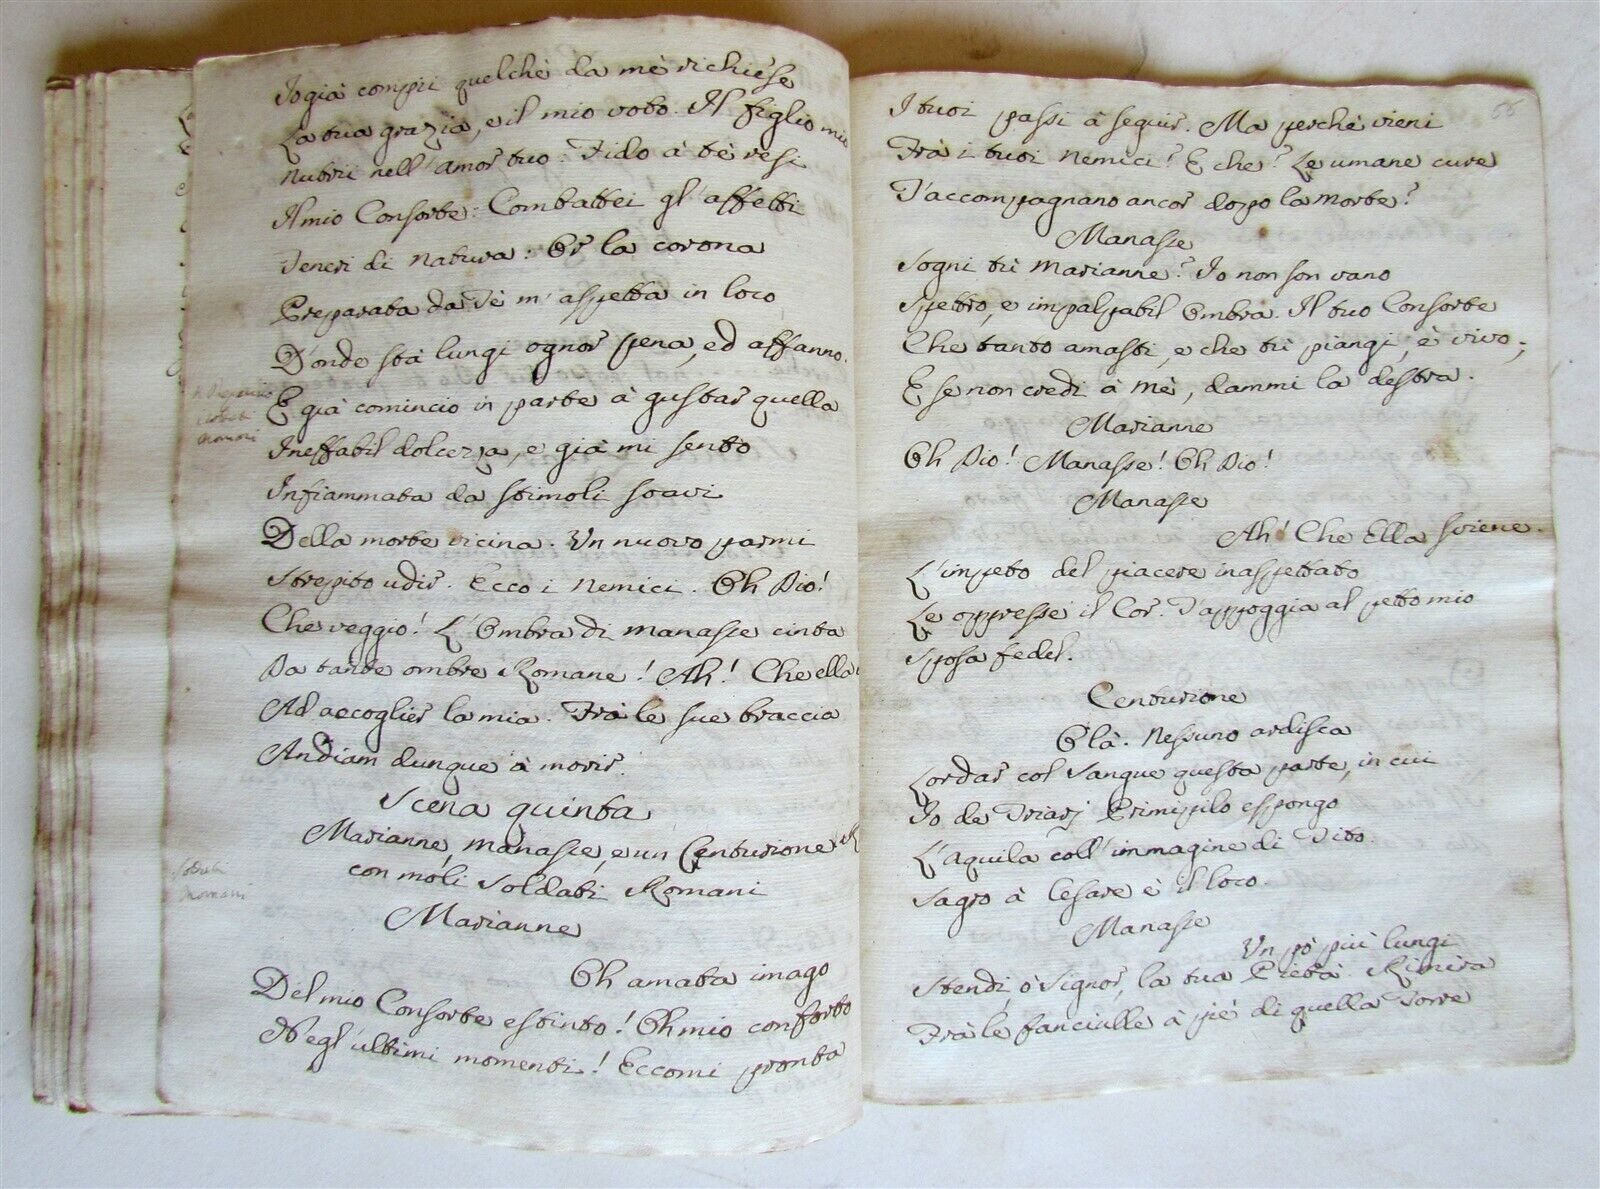 Io già compii quelchè da mè richiese
La tua grazia, e il mio voto. Il figlio mio
Nutrii nell'amor tuo: Fido à tè resi
Il mio Consorte: Combattei gl'affetti
Teneri di natura: Or la corona
Preparata da Tè m'aspetta in loco
D'onde stà lungi ognor pena, ed affanno.
E già comincio in parte à gustar quella
Ineffabil dolcezza, e già mi sento
Infiammata da stimoli soavi
Della morte vicina. Un nuovo parmi
Strepito udir. Ecco i Nemici. Oh Dio!
Che veggio! L'Ombra di Manasse cinta
Da tante ombre Romane! Ah! Che ella
Ad accoglier la mia. Frà le sue braccia
Andiam dunque à morir.
Scena quinta
Marianne, Manasse, e un Centurione
con molti Soldati Romani
Marianne
Oh amata imago
Del mio Consorte estinto! Oh mio conforto
Negl'ultimi momenti! Eccomi pronta
Soldati
Romani
56
I tuoi passi à seguir. Ma perchè vieni
Frà i tuoi nemici? E che? Le umane cure
T'accompagnano ancor dopo la morte?
Manasse
Sogni tù Marianne? Io non son vano
Spettro, e impalpabil Ombra. Il tuo Consorte
Che tanto amasti, e che tù piangi, è vivo;
E se non credi à mè, dammi la destra.
Marianne
Oh Dio! Manasse! Oh Dio!
Manasse
Ah! Che Ella sviene.
L'impeto del piacere inaspettato
Le oppresse il Cor. T'appoggia al petto mio
Sposa fedel.
Centurione
Olà. Nessuno ardisca
Lordar col Sangue questa parte, in cui
Io de Triarj Primipilo espongo
L'Aquila coll'immagine di Tito.
Sagro à Cesare è il loco.
Manasse
Un pò più lungi
Stendi, ò Signor, la tua Pietà. Rimira
Frà le fanciulle à piè di quella Torre